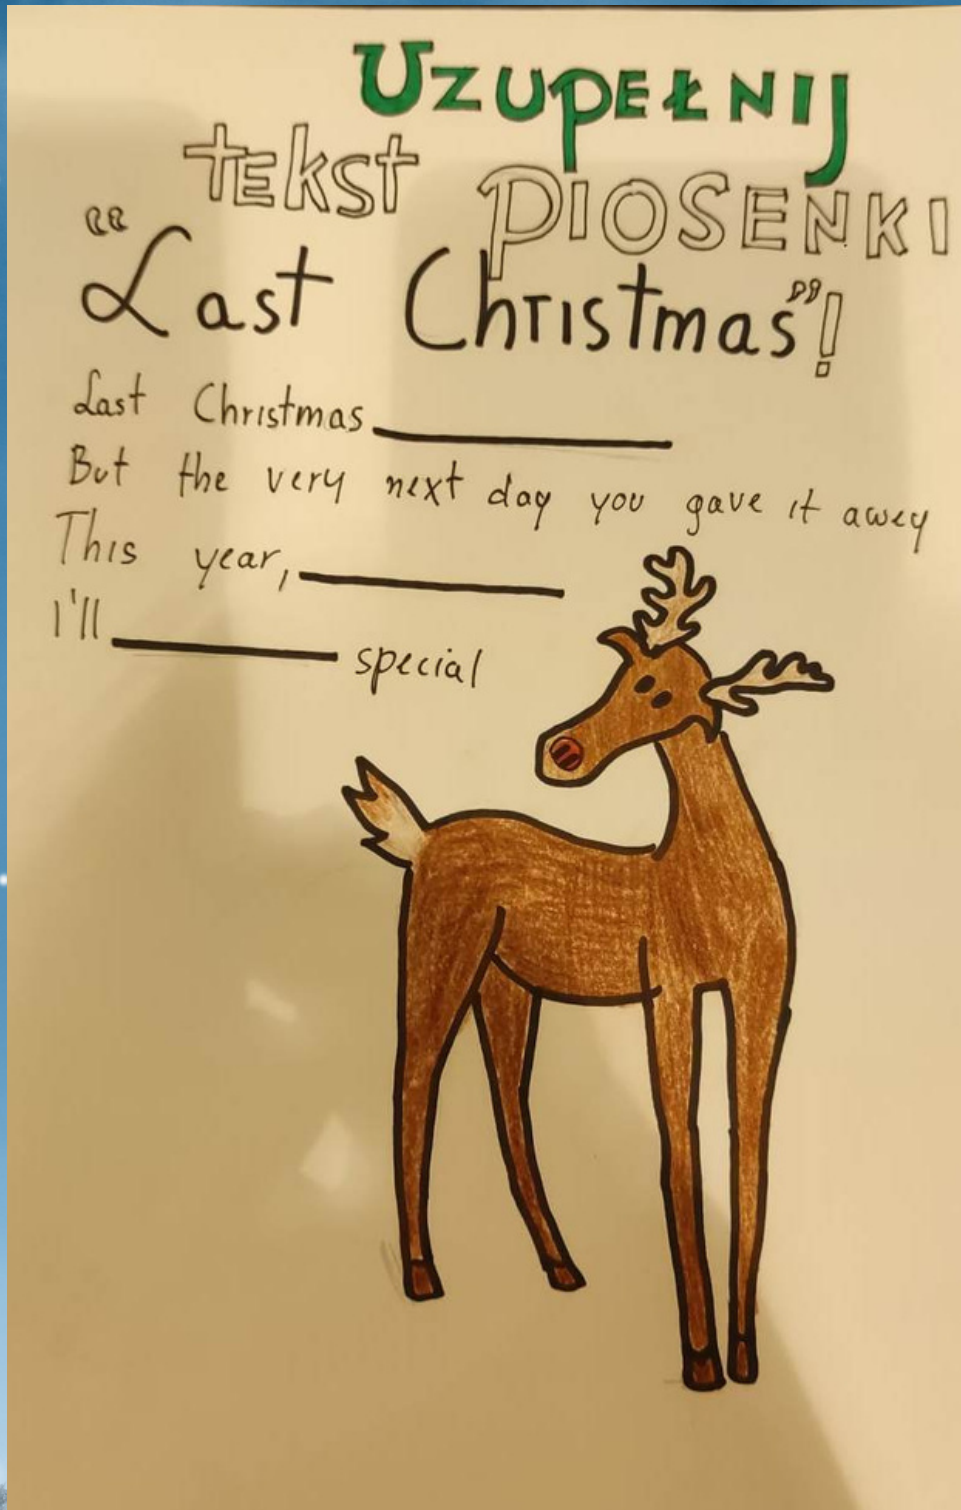 UZUPEŁNIJ
tekst PIOSENKI
"Last Christmas"!
Last Christmas __________
But the very next day you gave it away
This year, __________
I'll __________ special